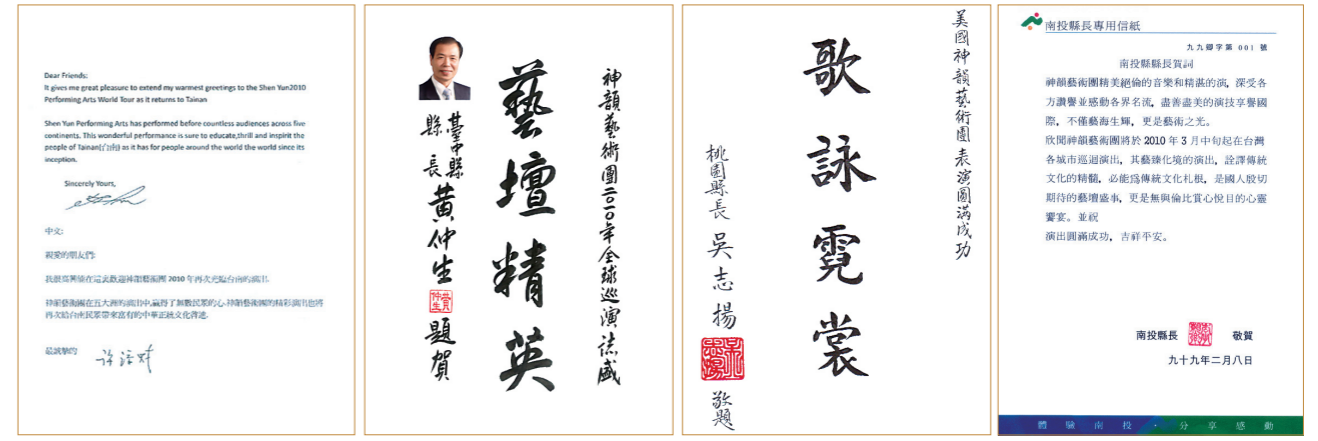 Dear Friends:
It gives me great pleasure to extend my warmest greetings to the Shen Yun2010
Performing Arts World Tour as it returns to Tainan
Shen Yun Performing Arts has performed before countless audiences across five
continents. This wonderful performance is sure to educate,thrill and inspirit the
people of Tainan(台南) as it has for people around the world the world since its
inception.
Sincerely Yours,
中文:
親愛的朋友們:
我很高興能在這裏歡迎神韻藝術團 2010 年再次光臨台南的演出.
神韻藝術團在五大洲的演出中,贏得了無數民眾的心.神韻藝術團的精彩演出也將
再次給台南民眾帶來富有的中華正統文化
最誠摯的
許添財
神韻藝術團二〇一〇年全球巡演誌盛
藝壇精英
臺中縣
縣長 黃仲生 題賀
黃仲生
美國神韻藝術團表演圓滿成功
歌詠霓裳
桃園縣長 吳志揚 敬題
南投縣長專用信紙
九九鄉字第 001 號
南投縣縣長賀詞
神韻藝術團精美絕倫的音樂和精湛的演, 深受各
方讚譽並感動各界名流, 盡善盡美的演技享譽國
際, 不僅藝海生輝, 更是藝術之光。
欣聞神韻藝術團將於 2010 年 3 月中旬起在台灣
各城市巡迴演出, 其藝臻化境的演出, 詮譯傳統
文化的精髓, 必能為傳統文化札根, 是國人殷切
期待的藝壇盛事, 更是無與倫比賞心悅目的心靈
饗宴。並祝
演出圓滿成功, 吉祥平安。
南投縣長 敬賀
九十九年二月八日
體驗南投・分享感動